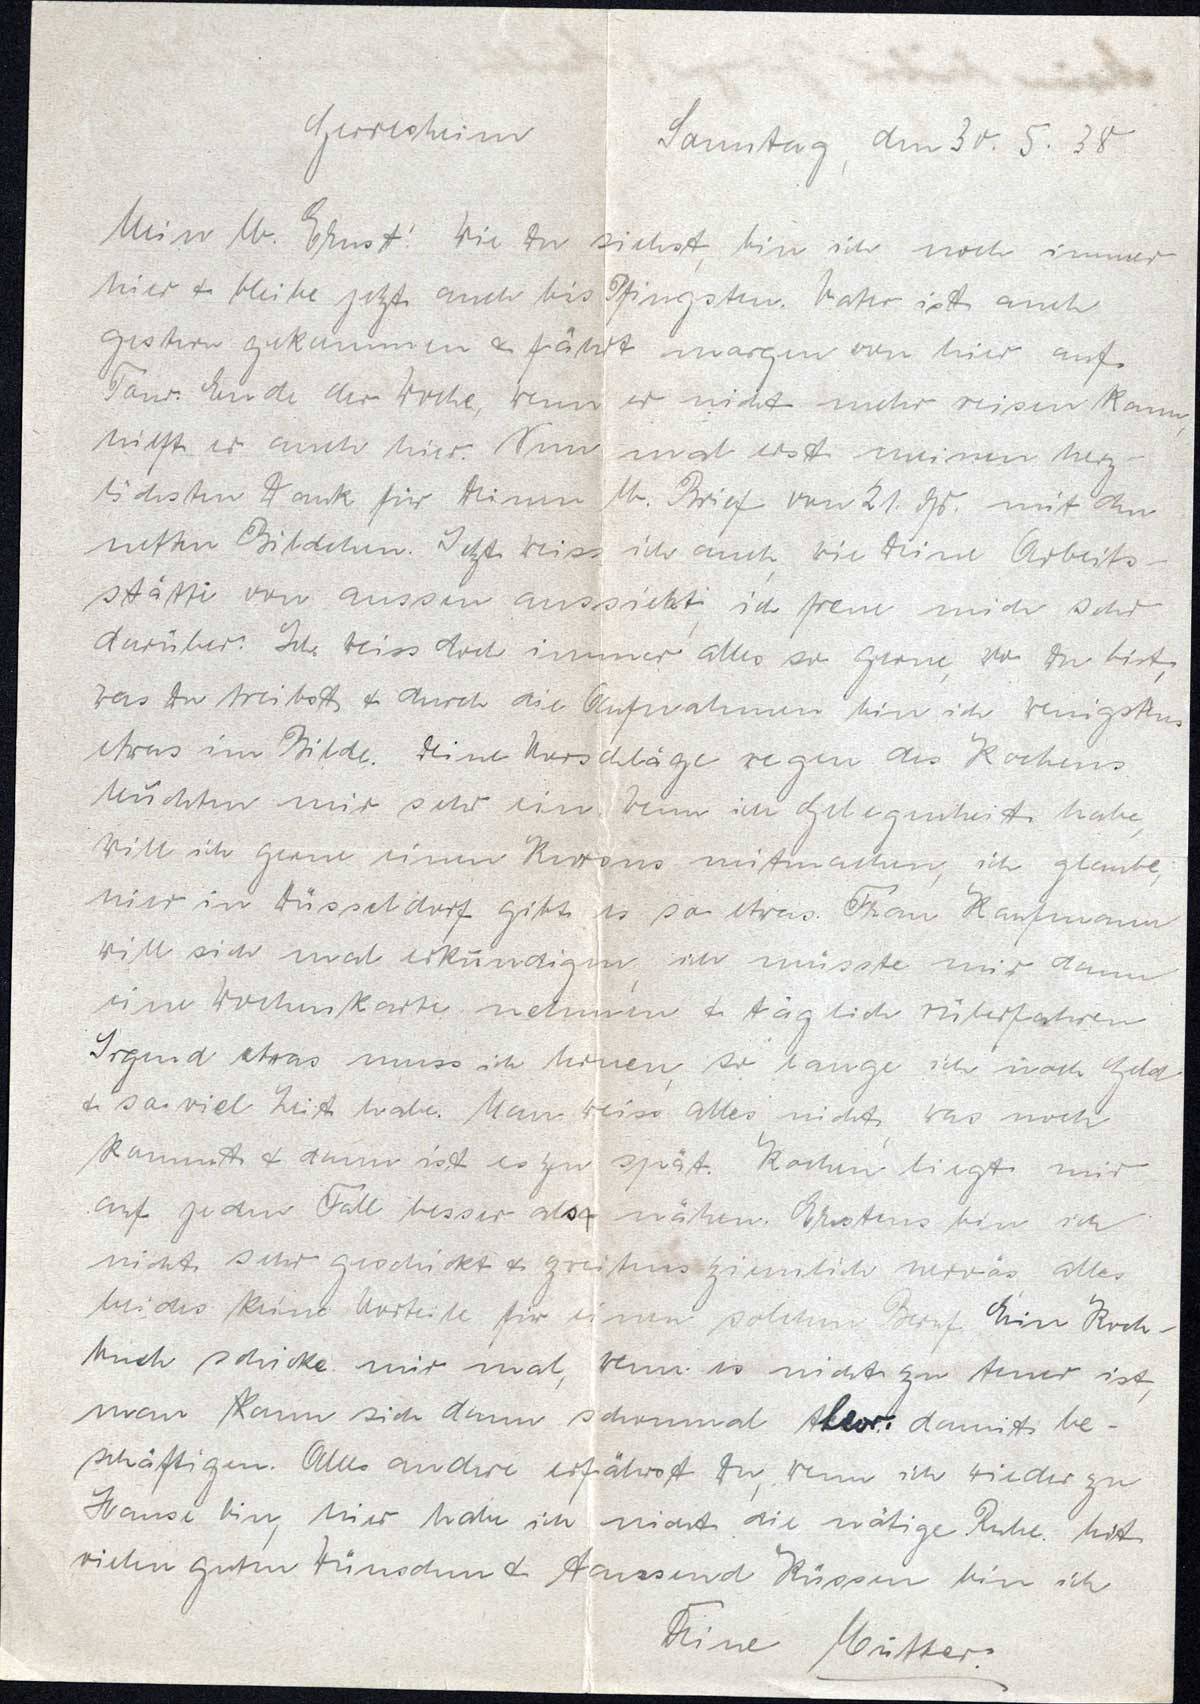 Gerresheim Sonntag, den 30. 5. 38
Mein lb. Ernst! Wie Du siehst, bin ich noch immer
hier & bleibe jetzt auch bis Pfingsten. Vater ist auch
gestern gekommen & fährt morgen von hier auf
Tour. Ende der Woche, wenn er nicht mehr reisen kann,
hilft er auch hier. Nun mal erst meinen herz-
lichsten Dank für Deinen lb. Brief von 21. ds. mit den
netten Bildchen. Jetzt weiss ich auch, wie Deine Arbeits-
stätte von aussen aussieht, ich freue mich sehr
darüber. Ich weiss doch immer alles so gerne, wo Du bist,
was Du treibst & durch die Aufnahmen bin ich wenigstens
etwas im Bilde. Deine Vorschläge wegen des Kochens
leuchten mir sehr ein. Wenn ich Gelegenheit habe,
will ich gerne einen Kursus mitmachen, ich glaube,
hier in Düsseldorf gibt es so etwas. Frau Kaufmann
will sich mal erkündigen, ich müsste mir dann
eine Wochenkarte nehmen & täglich rüberfahren
Irgend etwas muss ich lernen, so lange ich noch Geld
& so viel Zeit habe. Man weiss alles nicht, was noch
kommt & dann ist es zu spät. Kochen liegt mir
auf jeden Fall besser als nähen. Erstens bin ich
nicht sehr geschickt & zweitens ziemlich nervös alles
beides keine Vorteile für einen solchen Beruf. Ein Koch-
buch schicke mir mal, wenn es nicht zu teuer ist,
man kann sich dann schonmal theor. damit be-
schäftigen. Alles andere erfährst Du, wenn ich wieder zu
Hause bin, hier habe ich nicht die nötige Ruhe. Mit
vielen guten Wünschen & taussend Küssen bin ich
Deine Mutter.